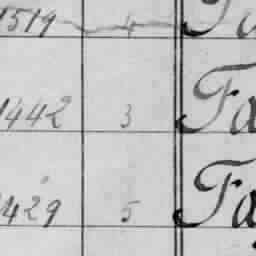 1519 4
1442 3 Fa
429 5 Fa